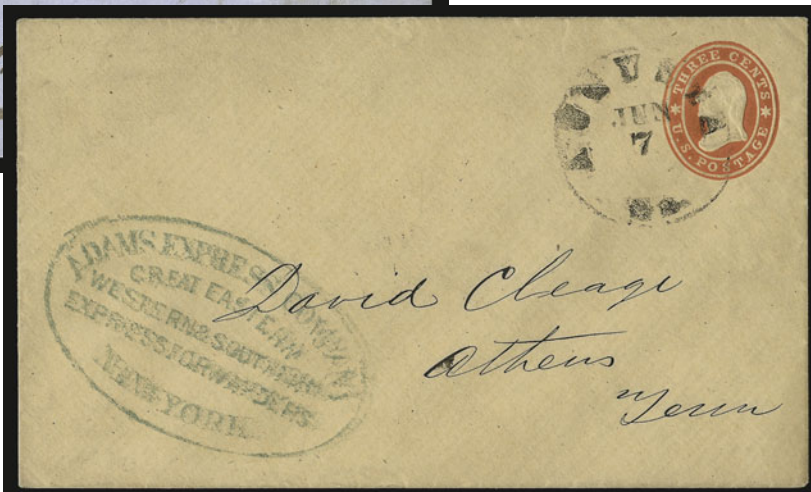 THREE CENTS
U.S. POSTAGE
JUN
7
ADAMS EXPRESS COMPANY
GREAT EASTERN
WESTERN & SOUTHERN
EXPRESS FORWARDERS
NEW YORK
David Cleage
Athens
Tenn